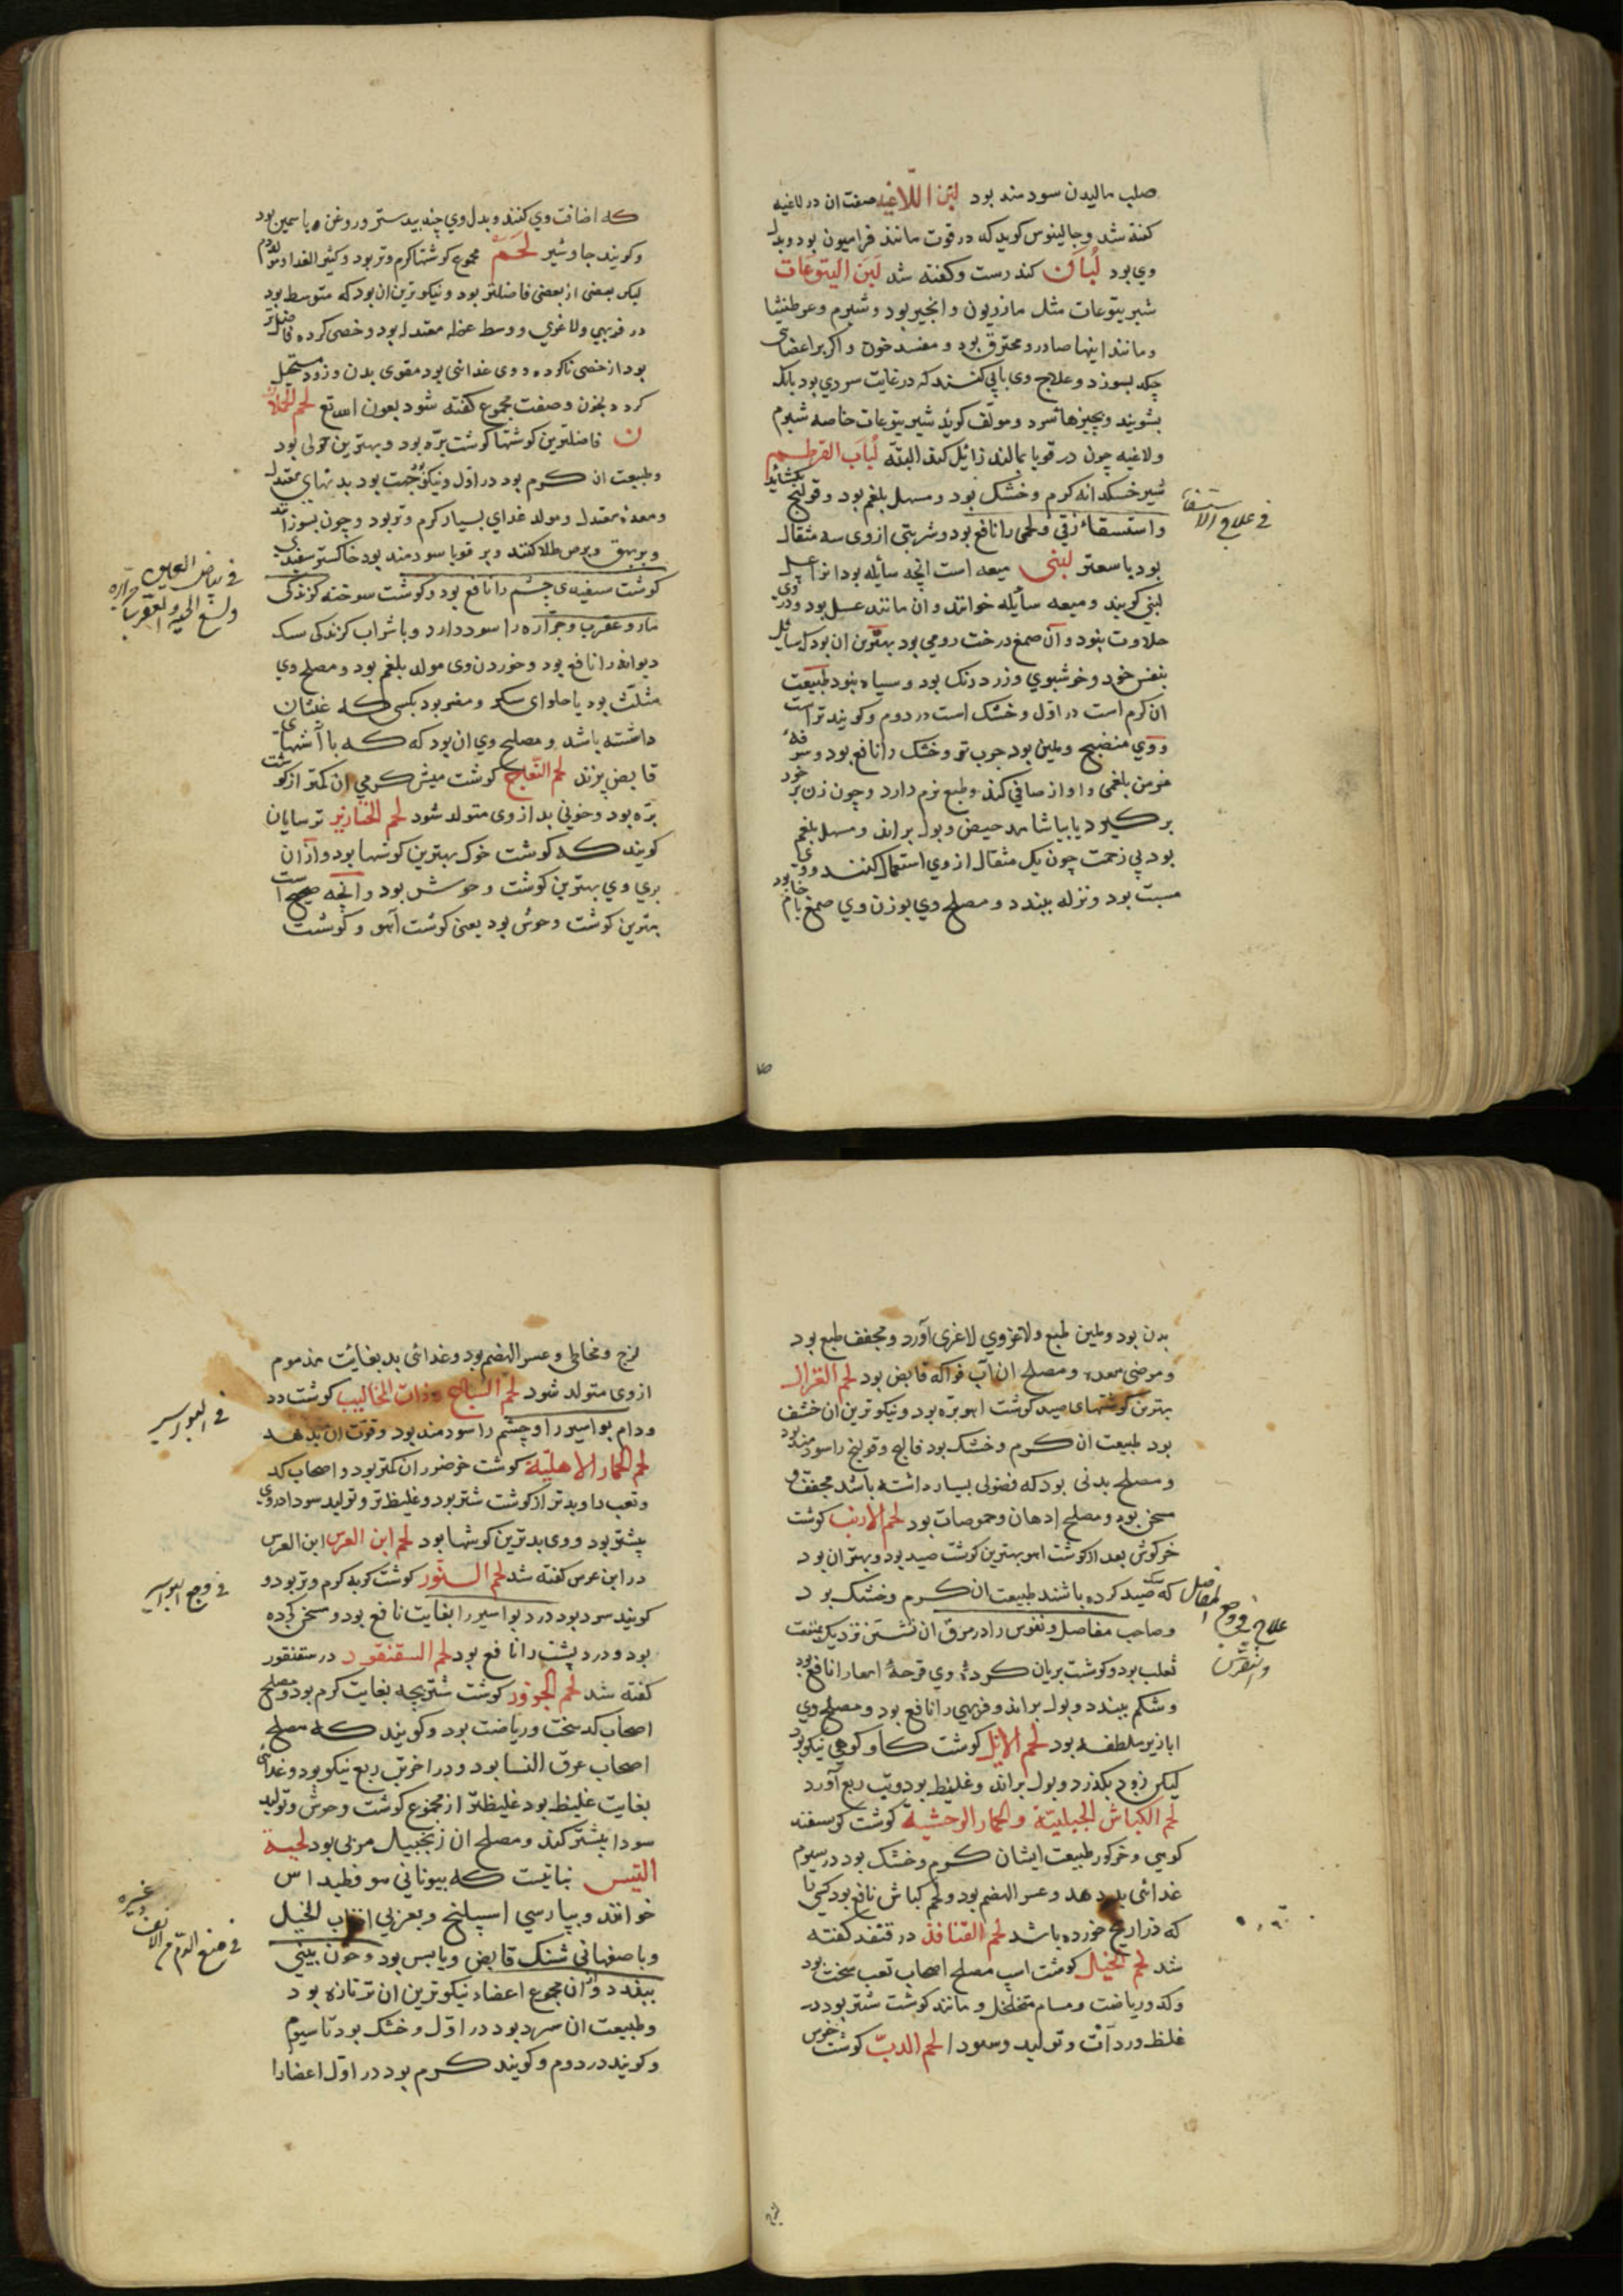 صلب ماليدن سودمند بود لبن اللاغيه صفت ان در لاغيه
كفته شد وجالينوس كويد كه در قوت مانند فراميون بود وبدل
وى بود لبان كندرست وكفته شد لبن اليتوعات
شير يتوعات مثل مازريون وانجير بود وشبرم وعرطنيثا
ومانند اينها صادر ومحترق بود ومفسد خون واكر بر اعضاى
چكد بسوزد وعلاج وى بآبى كنند كه در غايت سردي بود بلك
بشويند وبچيزهاء سرد ومولف كويد شير يتوعات خاصه شبرم
ولاغيه چون در قوبا بمالند زائل كند البته لباب القرطم
شير خسكدانه كرم وخشك بود ومسهل بلغم بود وقولنج بكشايد
واستسقاء زقى ولحمى را نافع بود وشربتى ازوى سه مثقال
بود با سعتر لبنى ميعه است انچه سائله بود انرا عسل
لبنى كويند وميعه سائله خوانند وان مانند عسل بود ودر وى
حلاوت بنود وان صمغ درخت رومى بود بهترين ان بود كه سائل
بنفس خود وخوشبوي وزرد رنك بود وسياه بنود طبيعت
ان كرم است در اول وخشك است در دوم وكويند تر است
ووي منضج وملين بود جرب تر وخشك را نافع بود وسرفهٔ
مزمن بلغمى واواز صافي كند وطبع نرم دارد وچون زن بخود
بر كيرد يا بياشامد حيض وبول براند ومسهل بلغم
بود بى زحمت چون يك مثقال ازوي استعمال كنند ووى
مسبت بود ونزله ببندد ومصلح وي بوزن وي صمغ بادام
في علاج الاستسقا
كه اضافت وي كنند وبدل وي جند بيدستر وروغن ياسمين بود
وكويند جاوشير لحم مجموع كوشتها كرم وتر بود وكثير الغدا ومولد دم
ليكن بعضى از بعضى فاضلتر بود ونيكوترين ان بود كه متوسط بود
در فربهي ولاغري ووسط عضله معتدل بود وخصى كرده فاضلتر
بود از خصى ناكرده ووى غدائى بود مقوى بدن وزود مستحيل
كردد بخون وصفت مجموع كفته شود بعون الله تع لحم الحملا
ن فاضلترين كوشتها كوشت بره بود وبهترين حولى بود
وطبيعت ان كرم بود در اول ونيكو جهت بود بدنهاي معتدل
ومعدهٔ معتدل ومولد غداي بسيار كرم وتر بود وچون بسوزانند
وبر بهق وبرص طلا كنند وبر قوبا سودمند بود خاكستر سفيدى
كوشت سفيدى چشم را نافع بود وكوشت سوخته كزندكى
مار وعقرب وجراره را سود دارد وبا شراب كزندكى سك
ديوانه را نافع بود وخوردن وى مولد بلغم بود ومصلح وي
مثلث بود يا حلواى سكر ومضر بود بكسى كه غثيان
داشته باشد ومصلح وي ان بود كه كه با آشهاى
قابض پزند لحم النعاج كوشت ميش كرمي ان كمتر از كوشت
بره بود وخونى بد ازوى متولد شود لحم الخنازير ترسايان
كويند كه كوشت خوك بهترين كوشتها بود وازان
بري وي بهترين كوشت وحوش بود وانچه صحيح است
بهترين كوشت وحوش بود يعنى كوشت آهو وكوشت
في بياض العين
ولسع الحيه والعقرب وجراره
بدن بود وملين طبع ولاغر وي لاغرى آورد ومجفف طبع بود
ومرخى معده ومصلح ان آب فواكه قابض بود لحم الغزال
بهترين كوشتهاى صيد كوشت اهو بره بود ونيكوترين ان خشف
بود طبيعت ان كرم وخشك بود فالج وقولنج را سودمند بود
ومصلح بدنى بود كه فضولى بسيار داشته باشد مجفف و
مسخن بود ومصلح ادهان وحموضات بود لحم الارنب كوشت
خركوش بعد از كوشت اهو بهترين كوشت صيد بود وبهتر ان بود
كه سك صيد كرده باشند طبيعت ان كرم وخشك بود
وصاحب مفاصل ونقرس را در مرق ان نشستن نزديك بمنفعت
ثعلب بود وكوشت بريان كردهٔ وي قرحهٔ امعا را نافع بود
وشكم ببندد وبول براند وفربهي را نافع بود ومصلح وي
ابازير ملطفه بود لحم الايل كوشت كاو كوهى نيكو بود
ليكن زود بكذرد وبول براند وغليظ بود وتب ربع آورد
لحم الكباش الجبلية والحمار الوحشية كوشت كوسفند
كوهي وخر كور طبيعت ايشان كرم وخشك بود در سيوم
غدائى بد دهد وعسر الهضم بود ولحم كباش نافع بود كسى را
كه ذراريح خورده باشد لحم القنافذ در قنفذ كفته
شد لحم الخيل كوشت اسپ مصلح اصحاب تعب سخت بود
وكد ورياضت ومسام متخلخل ومانند كوشت شتر بود در
غلظ وردائت وتوليد وسودا لحم الدب كوشت خرس
علاج في وجع المفاصل
والنقرس
لزج ومخاطى وعسر الهضم بود وغدائى بد بغائت مذموم
ازوى متولد شود لحم السباع وذات المخاليب كوشت دد
ودام بواسير را وچشم را سودمند بود وقوت ان بدهد
لحم الحمار الاهلية كوشت خر ضرر ان كمتر بود واصحاب كد
وتعب را وبدتر از كوشت شتر بود وغليظ تر وتوليد سودا در وى
بيشتر بود ووى بدترين كوشتها بود لحم ابن العرس ابن العرس
در ابن عرس كفته شد لحم السنور كوشت كربه كرم وتر بود و
كويند سرد بود درد بواسير را بغايت نافع بود ومسخن كرده
بود ودرد پشت را نافع بود لحم السقنقور در سقنقور
كفته شد لحم الجزور كوشت شتر بچه بغايت كرم بود ومصلح
اصحاب كد سخت ورياضت بود وكويند كه مصلح
اصحاب عرق النسا بود ودر اخر تب ربع نيكو بود وغدائى
بغايت غليظ بود غليظتر از مجموع كوشت وحوش وتوليد
سودا بيشتر كند ومصلح ان زنجبيل مربى بود لحية
التيس نباتيست كه بيونانى هوفسطيداس
خوانند وبپارسي اسپلنج وبعربي اذناب الخيل
وباصفهانى شنك قابض ويابس بود وخون بينى
ببندد وان مجموع اعضاء نيكوترين ان تر تازه بود
وطبيعت ان سرد بود در اول وخشك بود تا سيوم
وكويند در دوم وكويند كرم بود در اول اعضا را
في البواسير
في وجع البواسير
في منع الدم من الانف وغيره